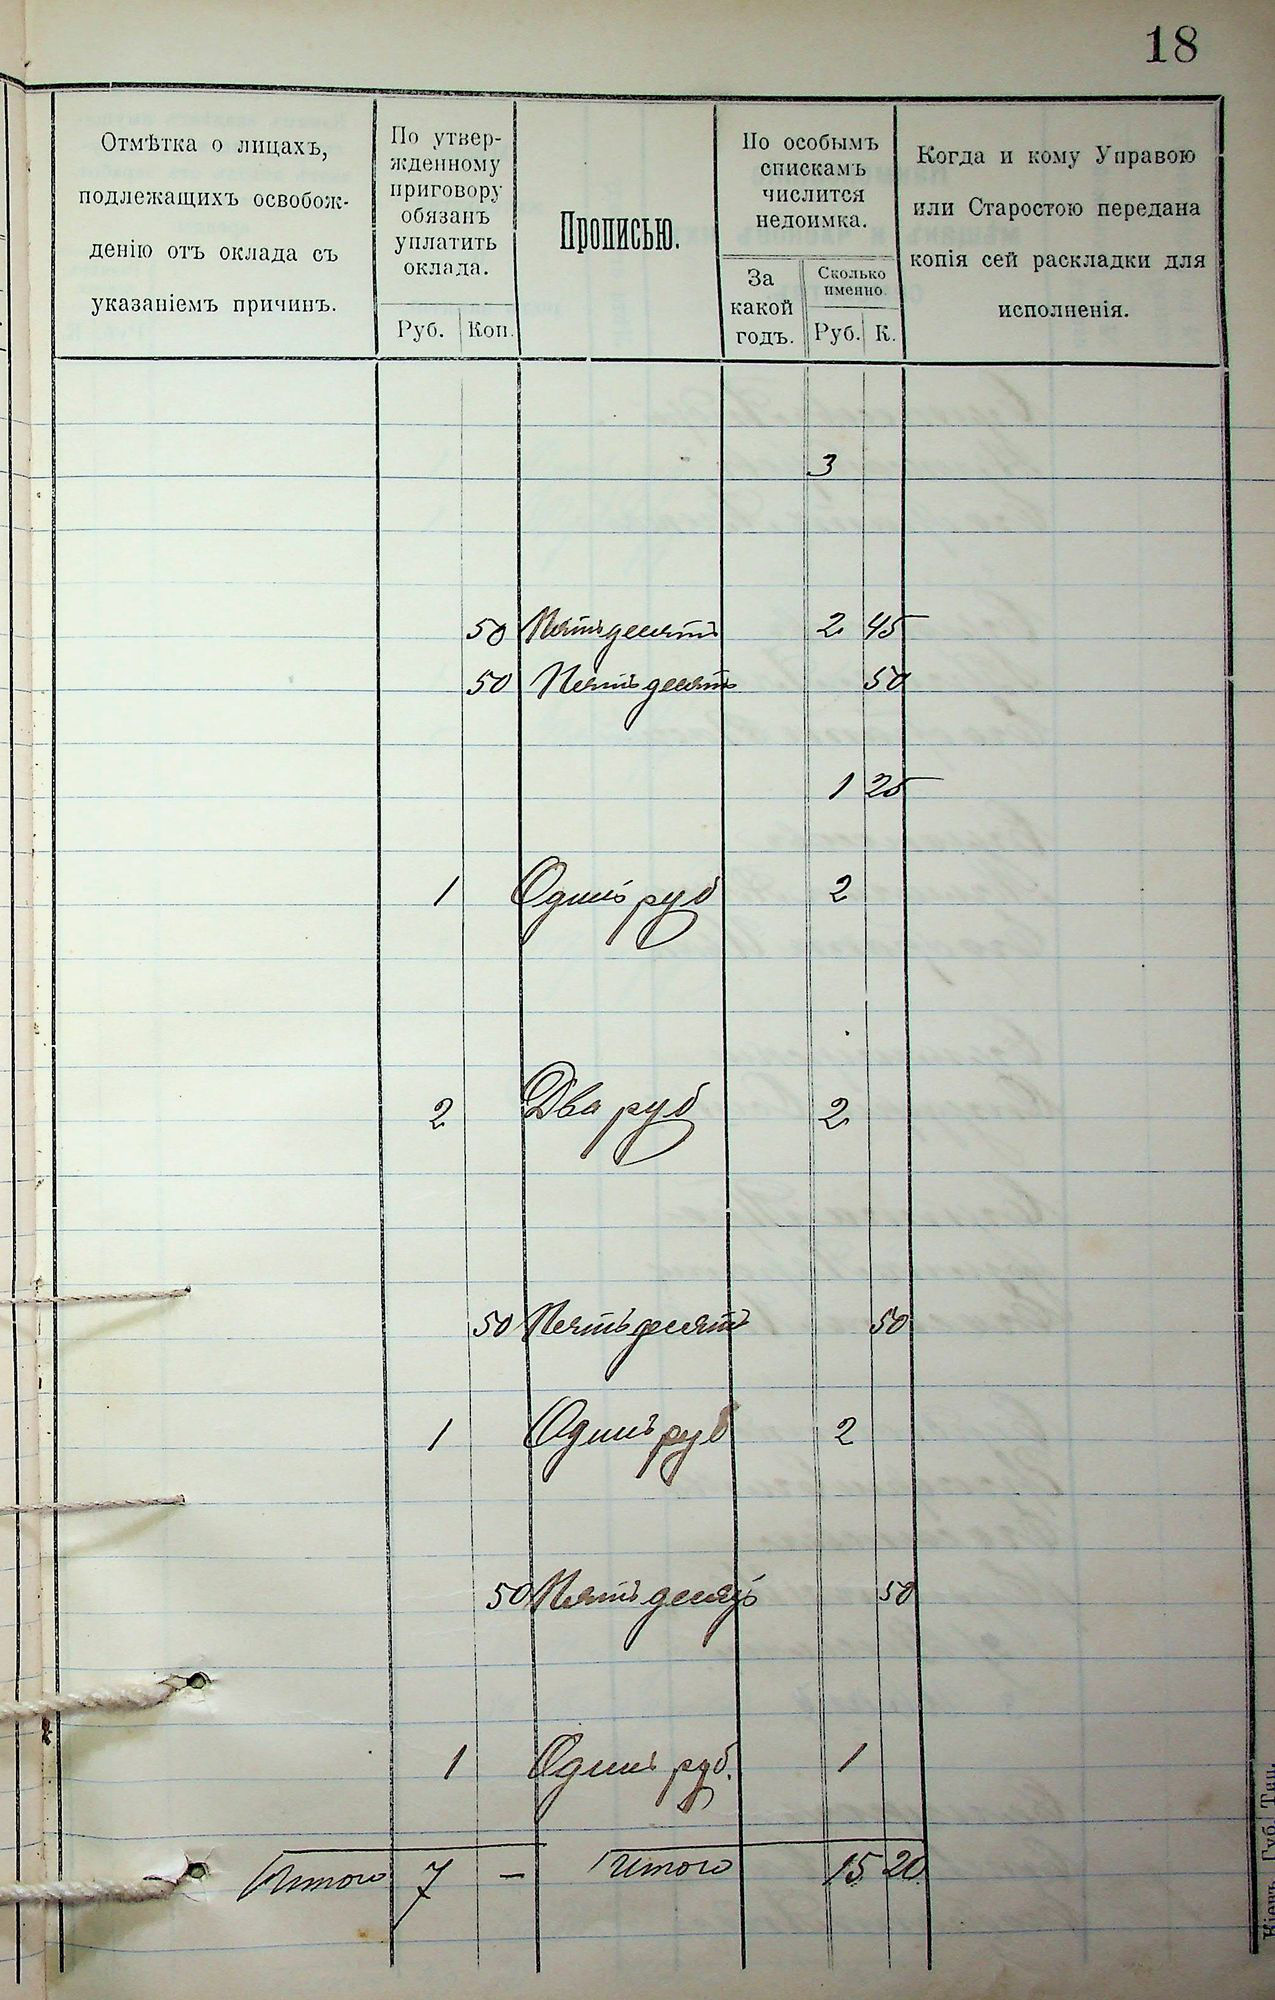 18
Отмѣтка о лицахъ,
подлежащихъ освобож-
денію отъ оклада съ
указаніемъ причинъ.
По утвер-
жденному
приговору
обязанъ
уплатить
оклада.
Руб. Коп.
Прописью.
По особымъ
спискамъ
числится
недоимка.
За
какой
годъ.
Сколько
именно.
Руб. К.
Когда и кому Управою
или Старостою передана
копія сей раскладки для
исполненія.
3
50 Пятьдесятъ 2 45
50 Пятьдесятъ 50
1 25
1 Одинъ руб 2
2 Два руб 2
50 Пятьдесятъ 50
1 Одинъ руб 2
50 Пятьдесятъ 50
1 Одинъ руб. 1
Итого 7 — Итого 15 20
Кіевъ, Губ. Тип.